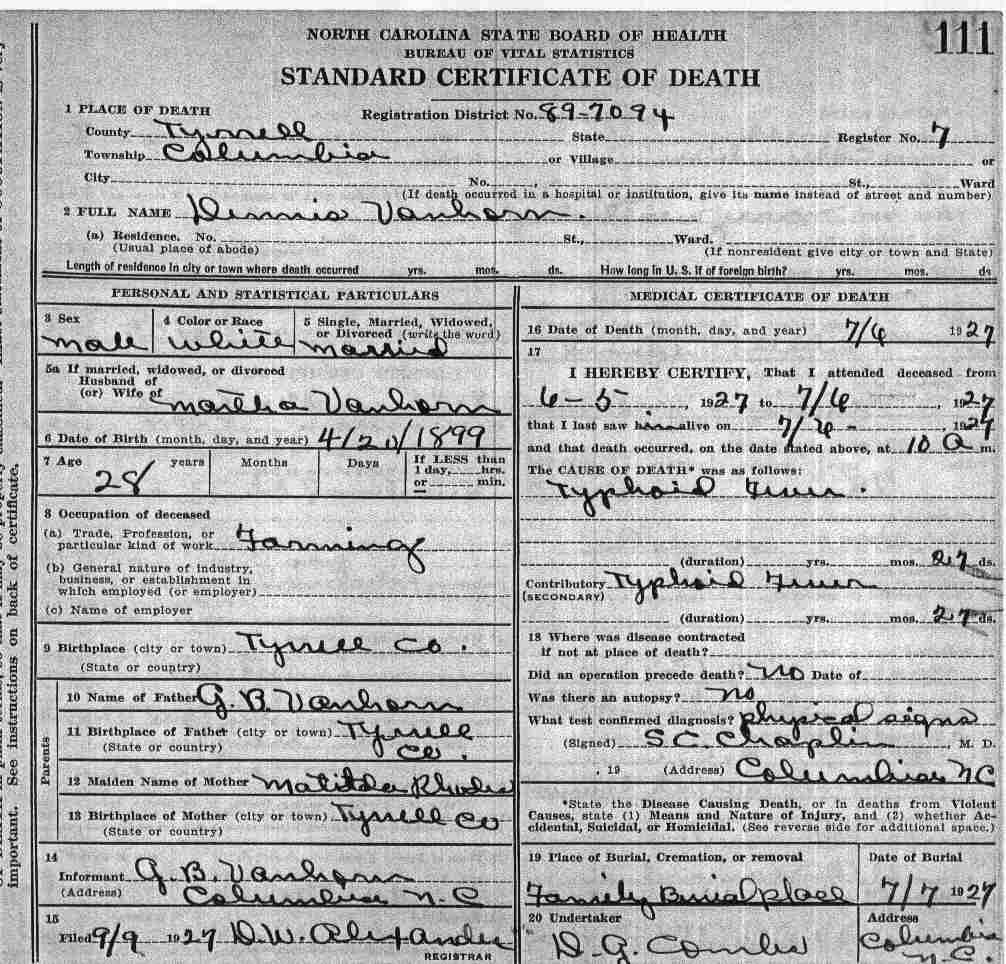 111
NORTH CAROLINA STATE BOARD OF HEALTH
BUREAU OF VITAL STATISTICS
STANDARD CERTIFICATE OF DEATH
1 PLACE OF DEATH
Registration District No. 89-7094
County Tyrrell State Register No. 7
Township Columbia or Village or
City No. , St., Ward
(If death occurred in a hospital or institution, give its name instead of street and number)
2 FULL NAME Dennis Vanhorn.
(a) Residence. No. St., Ward.
(Usual place of abode) (If nonresident give city or town and State)
Length of residence in city or town where death occurred yrs. mos. ds. How long in U. S. if of foreign birth? yrs. mos. ds
PERSONAL AND STATISTICAL PARTICULARS
3 Sex 4 Color or Race 5 Single, Married, Widowed,
or Divorced (write the word)
male white married
5a If married, widowed, or divorced
Husband of
(or) Wife of Martha Vanhorn
6 Date of Birth (month, day, and year) 4/20/1899
7 Age years Months Days If LESS than
1 day, hrs.
or min.
28
8 Occupation of deceased
(a) Trade, Profession, or
particular kind of work Farming
(b) General nature of industry,
business, or establishment in
which employed (or employer)
(c) Name of employer
9 Birthplace (city or town) Tyrrell Co.
(State or country)
Parents
10 Name of Father G. B. Vanhorn
11 Birthplace of Father (city or town) Tyrrell
(State or country) Co.
12 Maiden Name of Mother Matilda Rhodes
13 Birthplace of Mother (city or town) Tyrrell Co
(State or country)
14
Informant G. B. Vanhorn
(Address) Columbia N.C
15
Filed 9/9 1927 D. W. Alexander
REGISTRAR
MEDICAL CERTIFICATE OF DEATH
16 Date of Death (month, day, and year) 7/6 1927
17
I HEREBY CERTIFY, That I attended deceased from
6-5 , 1927 to 7/6 , 1927
that I last saw him alive on 7/6- , 1927
and that death occurred, on the date stated above, at 10 a m.
The CAUSE OF DEATH* was as follows:
Typhoid Fever.
(duration) yrs. mos. 27 ds.
Contributory Typhoid Fever
(SECONDARY)
(duration) yrs. mos. 27 ds.
18 Where was disease contracted
if not at place of death?
Did an operation precede death? No Date of
Was there an autopsy? no
What test confirmed diagnosis? physical signs
(Signed) S.C. Chaplin, M. D.
, 19 (Address) Columbia NC
*State the Disease Causing Death, or in deaths from Violent
Causes, state (1) Means and Nature of Injury, and (2) whether Ac-
cidental, Suicidal, or Homicidal. (See reverse side for additional space.)
19 Place of Burial, Cremation, or removal Date of Burial
Family Burial place 7/7 1927
20 Undertaker Address
D. G. Combs Columbia
N.C.
important. See instructions on back of certificate.